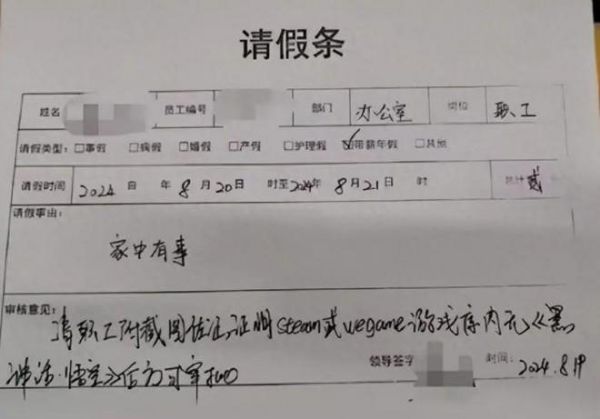 请假条
姓名 员工编号 部门 办公室 岗位 职工
请假类型: □事假 □病假 □婚假 □产假 □护理假 ☑带薪年假 □其他
请假时间 2024 自 年 8 月 20 日 时至 2024 年 8 月 21 日 时 总计 贰
请假事由:
家中有事
审核意见:
请职工附截图佐证,证明steam或wegame游戏库内无《黑
神话·悟空》后方可审批
领导签字 时间: 2024.8.19